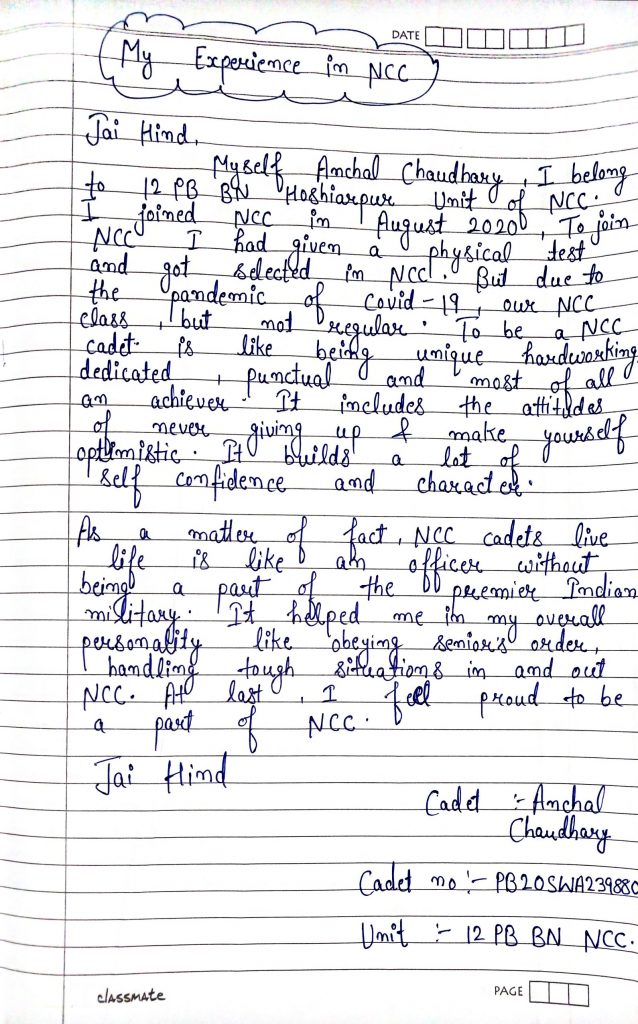 DATE
My Experience in NCC
Jai Hind,
Myself Anchal Chaudhary, I belong
to 12 PB BN Hoshiarpur Unit of NCC.
I joined NCC in August 2020, To join
NCC I had given a physical test
and got selected in NCC. But due to
the pandemic of Covid-19, our NCC
class, but not regular. To be a NCC
cadet is like being unique hardworking,
dedicated, punctual and most of all
an achiever. It includes the attitudes
of never giving up & make yourself
optimistic. It builds a lot of
self confidence and character.
As a matter of fact, NCC cadets live
life is like an officer without
being a part of the premier Indian
military. It helped me in my overall
personality like obeying senior's order,
handling tough situations in and out
NCC. At last, I feel proud to be
a part of NCC.
Jai Hind
Cadet :- Anchal
Chaudhary
Cadet no :- PB20SWA239880
Unit :- 12 PB BN NCC.
classmate
PAGE